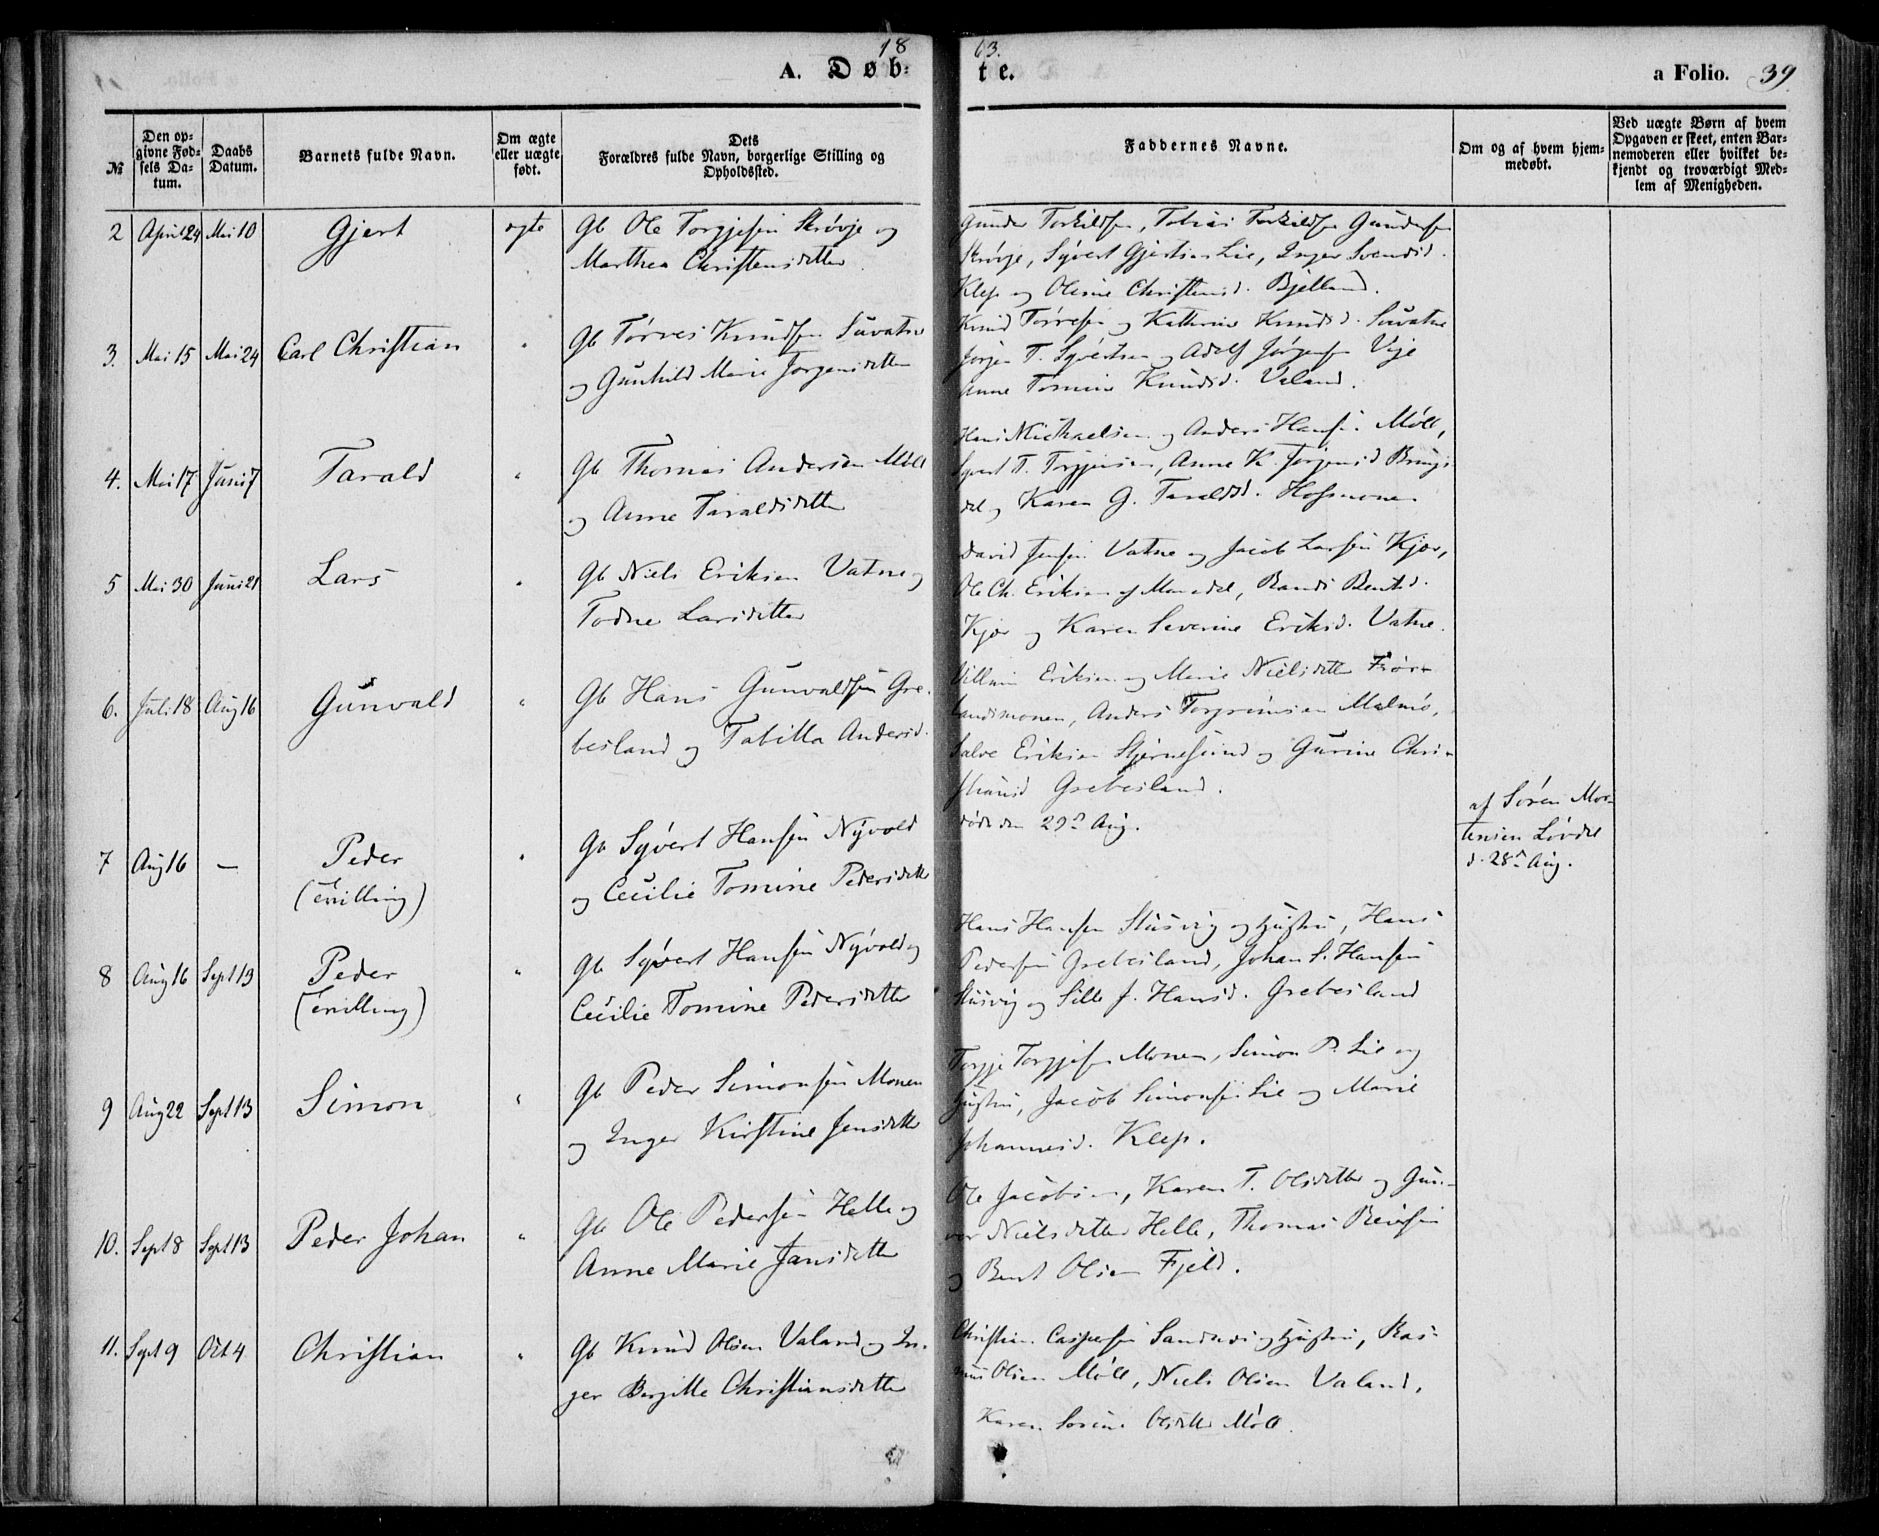 1863.
A. Døb-te.
a Folio. 39.
№
Den op-
givne Fød-
sels Da-
tum.
Daabs
Datum.
Barnets fulde Navn.
Om ægte
eller uægte
født.
Dets
Forældres fulde Navn, borgerlige Stilling og
Opholdssted.
Faddernes Navne.
Om og af hvem hjem-
medøbt.
Ved uægte Børn af hvem
Opgaven er skeet, enten Bar-
nemoderen eller hvilket be-
kjendt og troværdigt Med-
lem af Menigheden.
2 April 24 Mai 10 Gjert ægte Gb Ole Torgjesen Skrøvje og
Marthea Christensdatter
Gunder Torkildsen, Tobias Torkildsen Gundersen
Skrøvje, Syvert Gjertsen Lie, Inger Svendsd.
Klep og Olene Christensd. Bjelland.
3. Mai 15 Mai 24 Carl Christian " Gb Tørres Knudsen Suvatne
og Gunhild Marie Jørgensdatter
Knud Tørresen og Kathrine Knudsd. Suvatne
Jørgen T. Syvertsen og Adolf Jørgensen Veje
Anne Tomine Knudsd. Valand.
4. Mai 17 Juni 7 Tarald " Gb Thomas Andersen Møll
og Anne Taraldsdatter
Hans Michaelsen og Anders Hansen Møll,
Syvert T. Torgjusen, Anne K. Jørgensd Brings
dal og Karen G. Taraldsd. Hofsmonen
5 Mai 30 Juni 21 Lars " Gb Niels Eriksen Vatne og
Todne Larsdatter
David Jensen Vatne og Jacob Larsen Kjær,
Ole Ch. Eriksen af Mandal, Randi Bentsd.
Kjær og Karen Severine Eriksd. Vatne.
6. Juli 18 Aug 16 Gunvald " Gb Hans Gunvaldsen Gre-
besland og Tabitta Andersd.
Villum Eriksen og Marie Nielsdatter Frør-
landsmonen, Anders Torgrimsen Malmø,
Salve Eriksen Stjernesund og Gurine Chri-
stiansd Grebesland.
7 Aug 16 — Peder
(Tvilling)
" Gb Syvert Hansen Nyvold
og Cecilie Tomine Pedersdatter
døde den 29de Aug.
af Søren Mor-
tensen Løvdal
d. 28de Aug.
8 Aug 16 Sept 13 Peder
(Tvilling)
" Gb Syvert Hansen Nyvold og
Cecilie Tomine Pedersdatter
Hans Hansen Stusvig og Hustru, Hans
Pedersen Grebesland, Johan S. Hansen
Stusvig og Sille J. Hansd. Grebesland
9 Aug 22 Sept 13 Simon " Gb Peder Simonsen Monen
og Inger Kirstine Jensdatter
Torgje Torgjesen Monen, Simon P. Lie og
Hustru, Jacob Simonsen Lie og Marie
Johannesd. Klep.
10. Sept 8 Sept 13 Peder Johan " Gb Ole Pedersen Helle og
Anne Marie Jansdatter
Ole Jacobsen, Karen T. Olsdatter og Gun-
vor Nielsdatter Helle, Thomas Reiersen
og Bent Olsen Fjeld.
11. Sept 9 Oct 4 Christian " Gb Knud Olsen Valand og In-
ger Birgitte Christiansdatter
Christian Caspersen Sandnes og Hustru, Ras-
mus Olsen Møll, Niels Olsen Valand,
Karen Sorine Olsdatter Møll